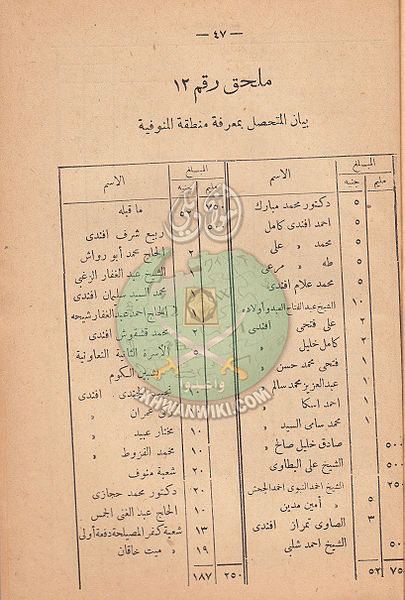 — ٤٧ —
ملحق رقم ١٢
بيان المتحصل بمعرفة منطقة المنوفية
المبلغ الاسم
مليم جنيه
٥ دكتور محمد مبارك
٥ احمد افندى كامل
٥ محمد » على
٥ طه » مرعى
٥ محمد علام افندى
١٠ الشيخ عبد الفتاح العبد واولاده
٢ على فتحى افندى
٢ كامل خليل »
١ فتحى محمد حسن »
١ عبد العزيز محمد سالم
١ احمد اسكا »
١ محمد سامى السيد »
صادق خليل صالح »
٥٠٠ الشيخ على البطاوى
٢٥٠ الشيخ احمد النبوى احمد الجحش
٥ » أمين مدين
٣ الصاوى نمراز افندى
٥٠٠ الشيخ احمد شلبى
٧٥٠ ٥٢
المبلغ الاسم
مليم جنيه
٧٥٠ ٥٢ ما قبله
٥٠٠ ربيع شرف افندى
٢ الحاج محمد أبو رواش
١ الشيخ عبد الغفار الزغبى
١ محمد السيد سليمان افندى
الحاج احمد عبد الغفار شيحه
محمد قشقوش افندى
٥ الأسرة الثانية التعاونية
الكوم
الجندى افندى
عمران »
١٠ مختار عبيد »
١٠ محمد القزوط »
٢٠ شعبة منوف
٢٠ دكتور محمد حجازى
١٠ الحاج عبد الغنى الجمس
١٣ شعبة كفر المصيلحة دفعة أولى
١٩ » ميت خاقان
٢٥٠ ١٨٧
الإخوان
وأعدوا
IKHWANWIKI.COM